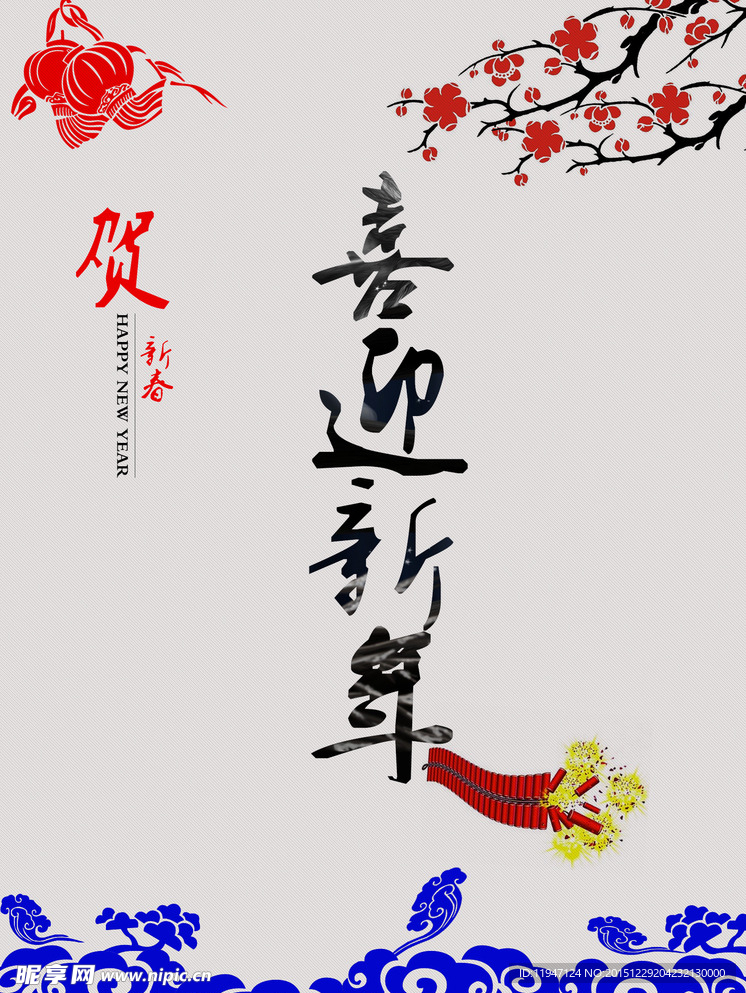 贺
新春
HAPPY NEW YEAR
喜迎新年
昵享网 www.nipic.cn
ID:11947124 NO:20151229204232130000